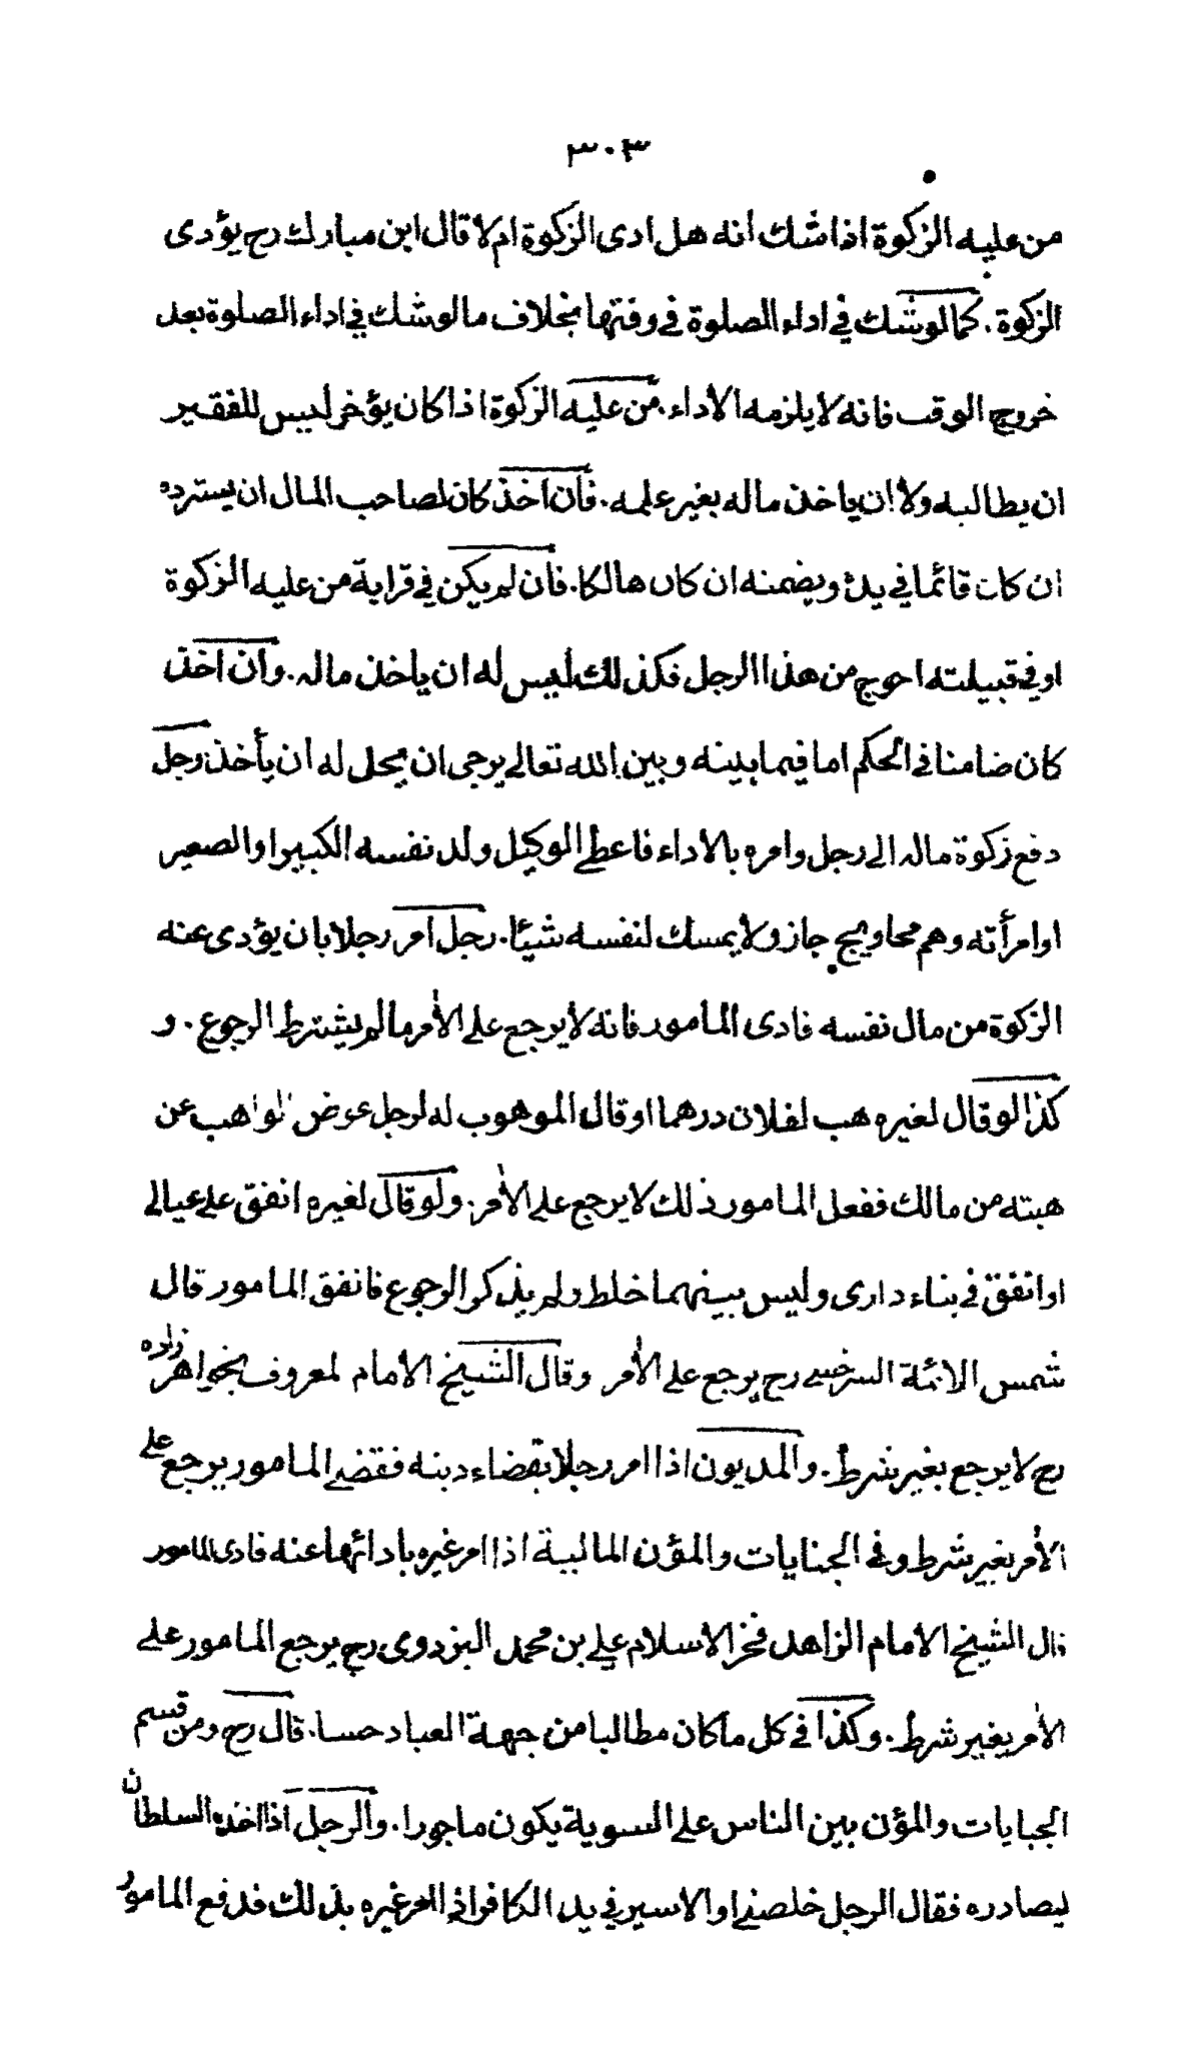 ٣٠٣
من عليه الزكوة اذا شك انه هل ادى الزكوة ام لا قال ابن مبارك رح يؤدى
الزكوة. كما لو شك في اداء الصلوة في وقتها بخلاف ما لو شك في اداء الصلوة بعد
خروج الوقت فانه لا يلزمه الأداء. من عليه الزكوة اذا كان يؤخر ليس للفقير
ان يطالبه ولا ان ياخذ ماله بغير علمه. فان اخذ كان لصاحب المال ان يسترده
ان كان قائما في يده ويضمنه ان كان هالكا. فان لم يكن في قرابة من عليه الزكوة
او في قبيلته احوج من هذا الرجل فكذلك ليس له ان ياخذ ماله. وان اخذ
كان ضامنا في الحكم اما فيما بينه وبين الله تعالى يرجى ان يحل له ان يأخذ رجل
دفع زكوة ماله الى رجل وامره بالاداء فاعطى الوكيل ولد نفسه الكبير او الصغير
او امرأته وهم محاويج جاز ولا يمسك لنفسه شيئا. رجل امر رجلا بان يؤدى عنه
الزكوة من مال نفسه فادى المأمور فانه لا يرجع على الأمر ما لم يشترط الرجوع. و
كذا لو قال لغيره هب لفلان درهما او قال الموهوب له لرجل عوض الواهب عن
هبته من مالك ففعل المامور ذلك لا يرجع على الأمر. ولو قال لغيره انفق على عيالى
او انفق في بناء دارى وليس بينهما خلط ولم يذكر الرجوع فانفق المامور قال
شمس الائمة السرخسي رح يرجع على الأمر وقال الشيخ الامام لمعروف بخواهر زاده
رح لا يرجع بغير شرط. والمديون اذا امر رجلا بقضاء دينه فقضى المامور يرجع على
الأمر بغير شرط وفى الجنايات والمؤن المالية اذا امر غيره بادائها عنه فادى المامور
قال الشيخ الامام الزاهد فخر الاسلام علي بن محمد البزدوى رح يرجع المامور على
الأمر بغير شرط. وكذا في كل ما كان مطالبا من جهة العباد حسا. قال رح ومن قسم
الجبايات والمؤن بين الناس على السوية يكون ماجورا. والرجل اذا اخذه السلطان
ليصادره فقال الرجل خلصني او الاسير في يد الكافر اذا امر غيره بذلك فدفع المامور